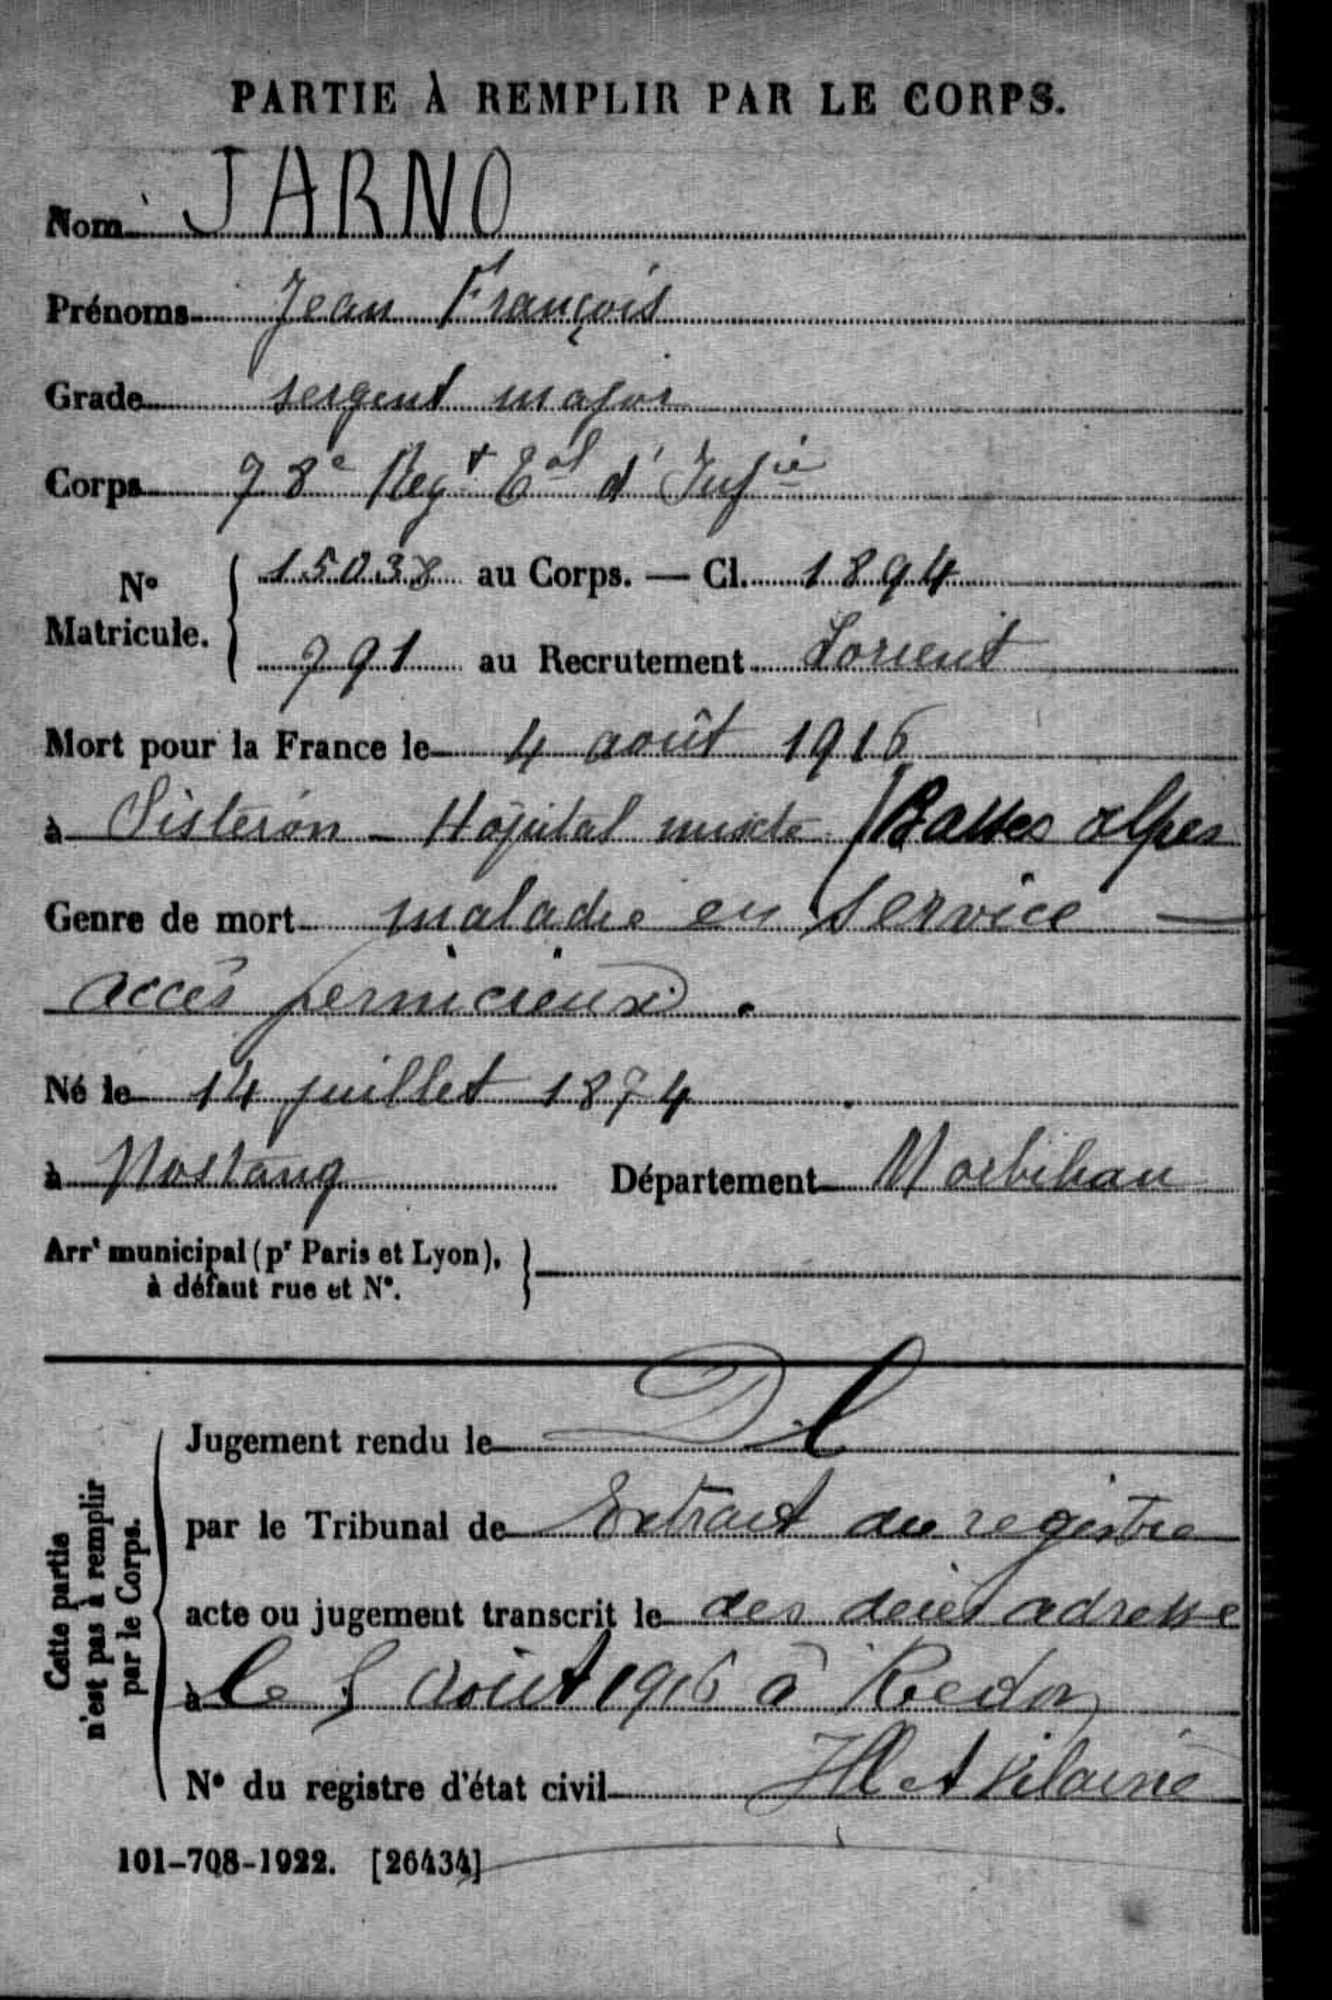 PARTIE À REMPLIR PAR LE CORPS.
Nom JARNO
Prénoms Jean François
Grade sergent major
Corps 78e Regt Eal d'Infie
No Matricule. 15038 au Corps. — Cl. 1894
791 au Recrutement Lorient
Mort pour la France le 4 août 1916
à Sisteron - Hôpital mixte (Basses alpes
Genre de mort maladie en service —
accès pernicieux.
Né le 14 juillet 1874
à Nostang Département Morbihan
Arrt municipal (pr Paris et Lyon),
à défaut rue et No.
Cette partie
n'est pas à remplir
par le Corps.
Jugement rendu le
par le Tribunal de Extrait du registre
acte ou jugement transcrit le des décès adressé
à le 5 Août 1916 à Redon
No du registre d'état civil Ille et Vilaine
101-708-1922. [26434]